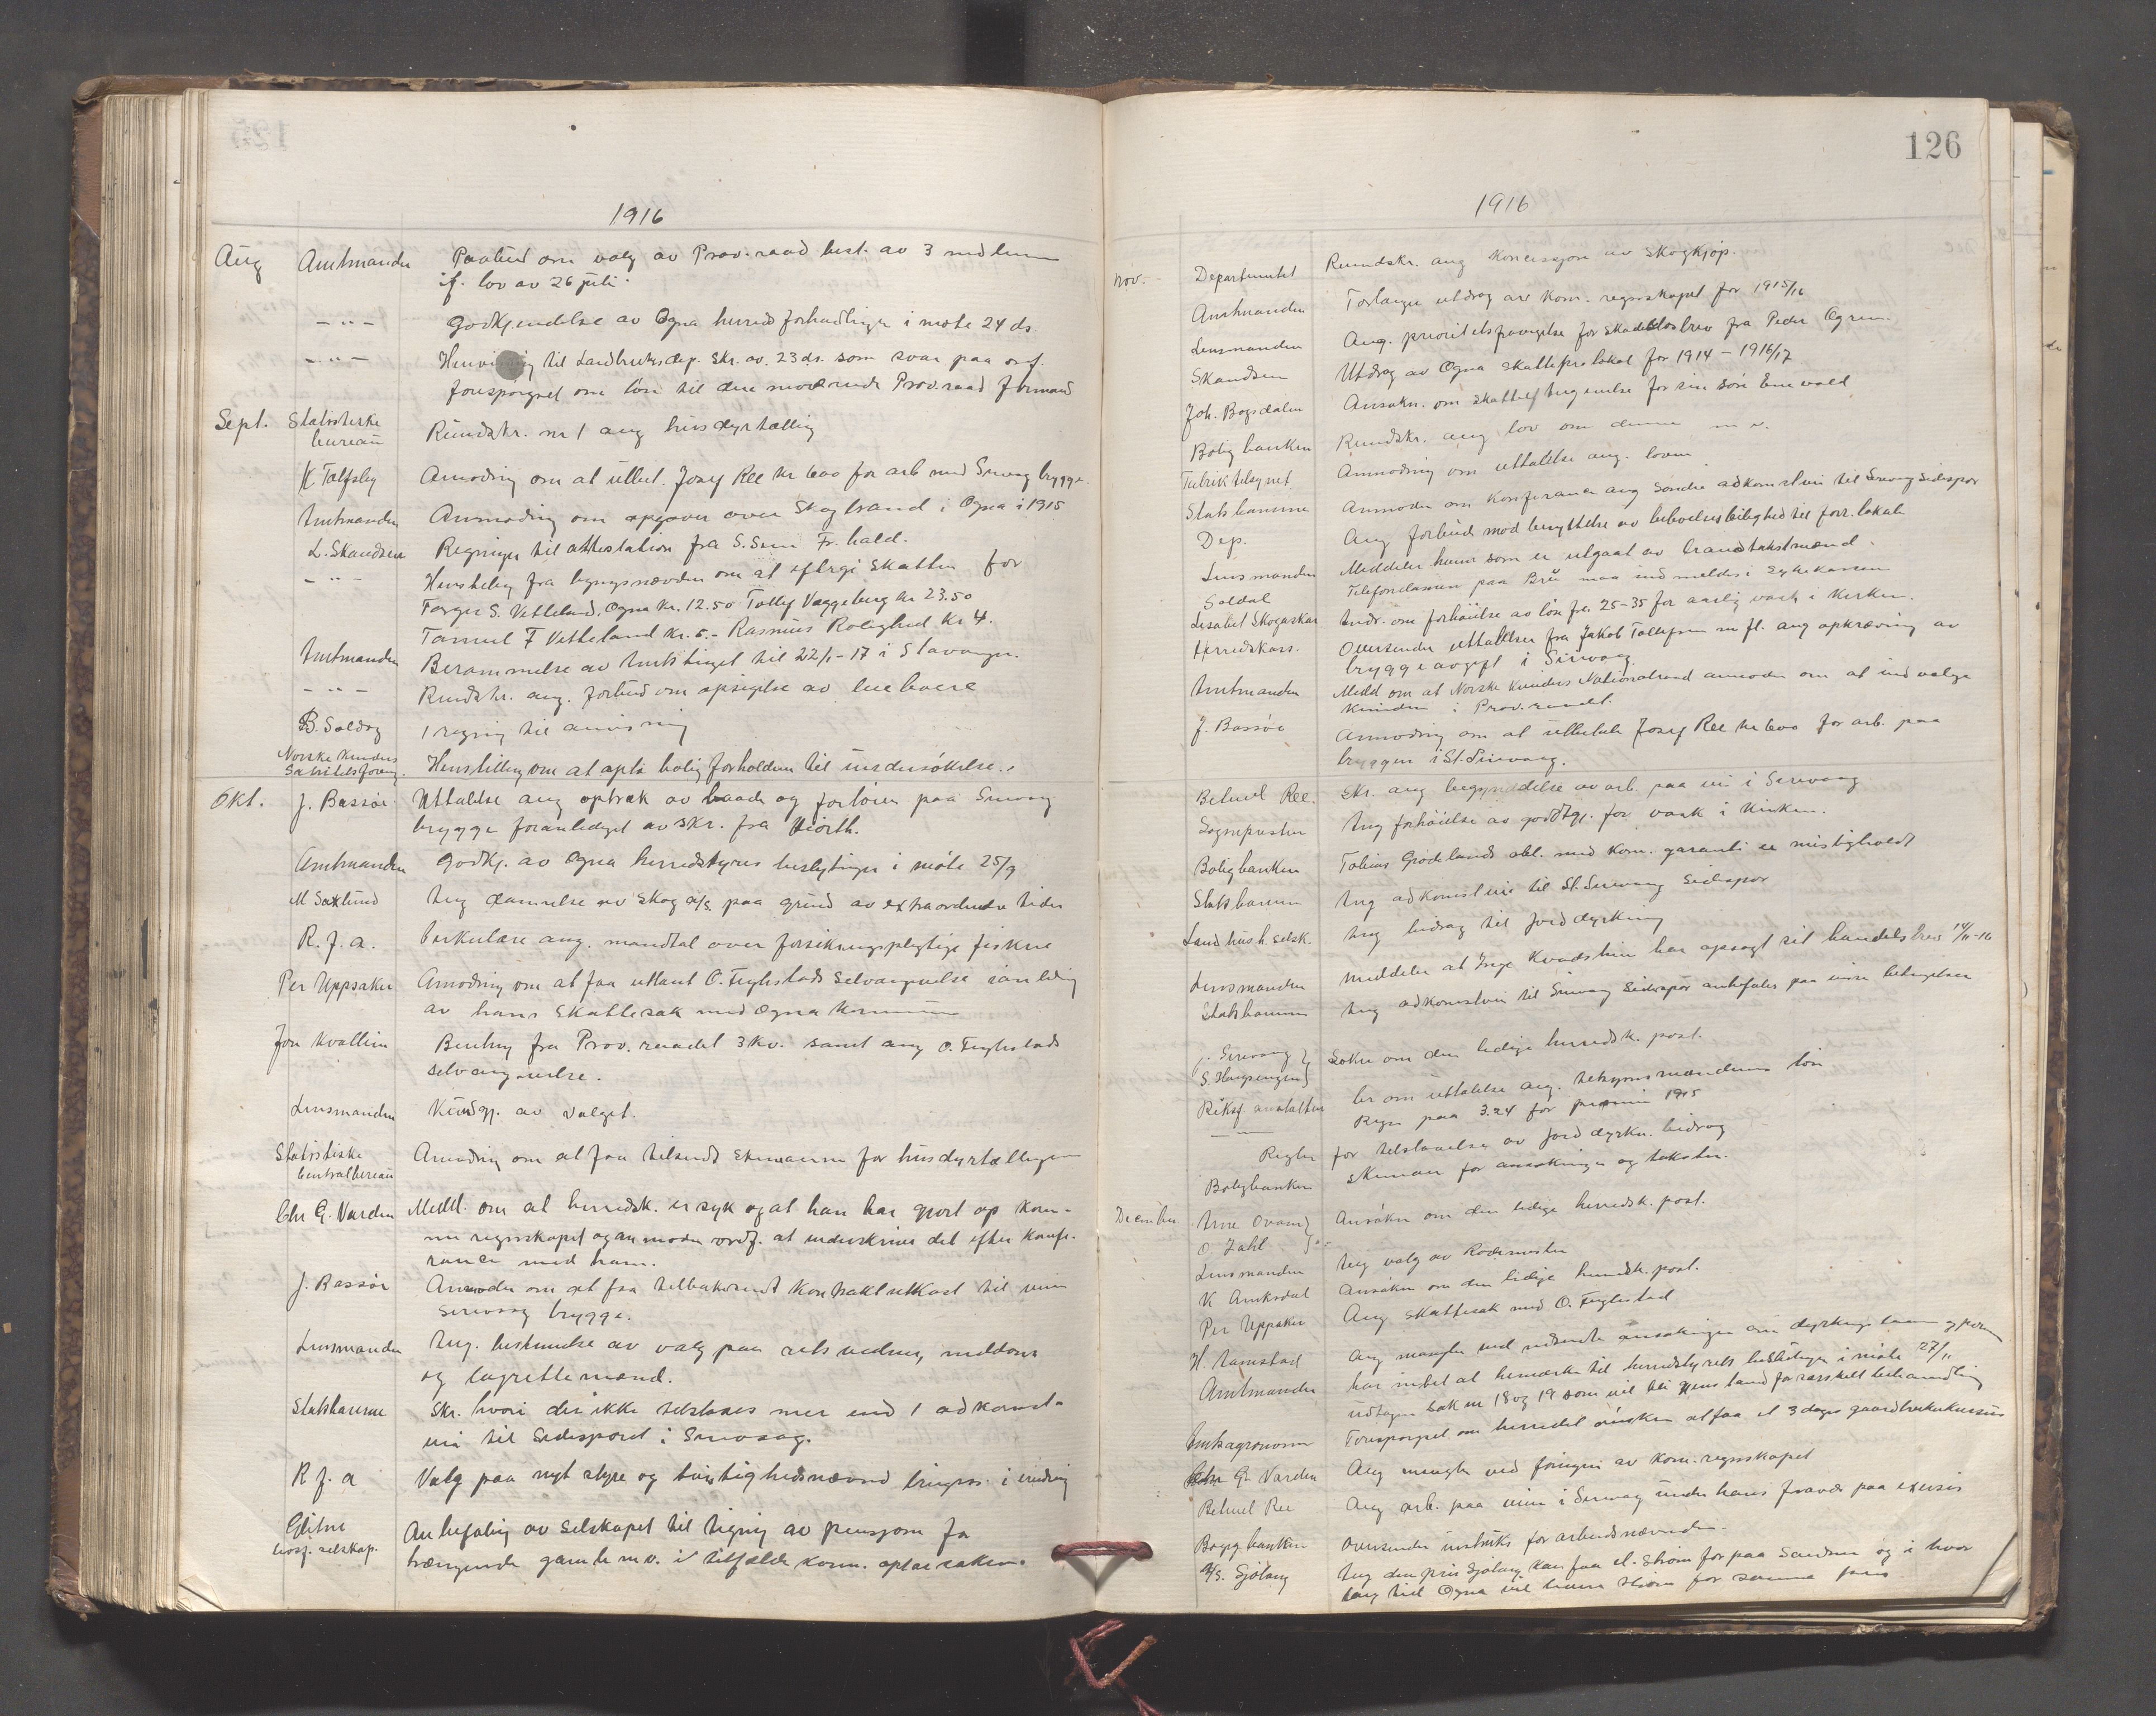 1916
Aug Amtmanden Paabud om valg av Prov.raad best. av 3 medlemmer
if. lov av 26 juli.
- " - Godkjendelse av Ogna herreds forhandlinger i møte 24 ds.
- " - til Landbruksdep. skr. av 23 ds. som svar paa
forespørgsel om løn til den nuværende Prov.raads formand
Sept. Statistiske Rundskr. nr 1 ang husdyrtælling
bureau
K. Amodning om at utbet. Josef Ree kr 600 for arb med Sirevaag brygge.
Amtmanden Anmodning om opgaver over Skogbrand i Ogna i 1915
L. Skandsen Regninger til attestation fra S. Fr. hald.
- " - Henstilling fra ligningsnævnden om at eftergi skatten for
S. Vetteland, Ogna kr. 12.50 Vaggeberg kr 23.50
F Vetteland kr. 5.- Rasmus Rolighed kr 4.
Amtmanden Berammelse av Amtstinget til 22/1-17 i Stavanger.
- " - Rundskr. ang. forbud om opsigelse av leieboere
B. 1 regning til anvisning
Norske Kvinders
Sanitetsforeng. Henstilling om at opta boligforholdene til undersøkelse.
Okt. J. Bassøe Uttalelse ang optræk av baade og fortøien paa Sirevaag
brygge foranlediget av skr. fra
Amtmanden Godkj. av Ogna herredstyres beslutninger i møte 25/9
M Saxlund Ang dannelse av Skog a/s. paa grund av extraordinære tider
R. f. a. Cirkulære ang. mandtal over forsikringspligtige fiskere
Per Uppsaker Amodning om at faa utlaant O. Fuglestads Selvangivelse i anledning
av hans Skattesak med Ogna kommune
Jon Kvallein fra Prov. raadet 3 kv. samt ang O. Fuglestads
selvangivelse.
Lensmanden Kundgj. av valget.
Statistiske Amodning om at faa tilsendt skemaerne for husdyrtællingen
Centralbureau
Chr G. Varden Medd. om at herredsk. er syk og at han har gjort op kom-
ne regnskapet og anmoder ordf. at underskrive det efter konfe-
rance med ham.
J. Bassøe Anmoder om at faa tilbakesendt kontraktutkast til
Sirevaag brygge.
Lensmanden Ang. bestemmelse av valg paa retsvidner, meddoms
og lagrettemænd.
Statsbanerne Skr. hvori der ikke tilstaaes mer end 1 adkomst-
vei til Sidesporet i Sirevaag.
R f. a Valg paa nyt styre og tvistighedsnævnd
Glitne Anbefaling av Selskapet til tegning av pensjon for
livsf. selskap. trængende gamle m.v. i tilfælde kom. optar saken.
126
1916
Nov. Departementet Rundskr. ang koncession av Skogkjøp.
Amtmanden Forlanger utdrag av kom. regnskapet for 1915/16
Lensmanden Ang. prioritetsfravigelse for Skadesløsbrev fra Peder
Skandsen Utdrag av Ogna Skatteprotokol for 1914 - 1916/17
Joh. Bogsdalen Ansøkn. om skatteeftergivelse for sin søn
Boligbanken Rundskr. ang lov om denne m v.
Fabriktilsynet Anmodning om uttalelse ang. loven
Statsbanerne Anmoder om konferance ang søndre adkomstvei til Sirevaag Sidespor
Dep. Ang forbud mod benyttelse av beboelsesleilighed til forr. lokale
Lensmanden Meddeler hvem som er utgaat av brandtakstmænd.
Soldal Telefondamen paa Brú maa indmeldes i sykekassen
Lisabet Skogaskar Andr. om forhøielse av løn fra 25-35 for aarlig vask i kirken.
Herredskass. Oversender uttalelser fra Jakob Tollefsen m fl. ang opkrævning av
bryggeavgift i Sirevaag.
Amtmanden Medd om at Norske Kvinders Nationalraad anmoder om at indvælge
kvinder i Prov.raadet.
J. Bassøe Anmodning om at utbetale Josef Ree kr 600 for arb. paa
bryggen i St. Sirevaag.
Betuel Ree. Skr. ang begyndelse av arb. paa vei i Sirevaag
Sogneprsten Ang forhøielse av godtgj. for vask i kirken.
Boligbanken Tobias Grødelands obl. med kom. garanti er misligholdt
Statsbanerne Ang adkomstvei til St. Sirevaag Sidespor
Landhush. selsk. Ang bidrag til jorddyrkning
Lensmanden Meddeler at Inge har opsagt sit handelsbrev 14/11-16
Statsbanerne Ang adkomstvei til Sirevaag Sidespor anbefales paa visse betingelser
Sirevaag } Søker om den ledige herredsk. post.
S. }
Riksf. anstalten ber om uttalelse ang. tilsynsmandens løn
- " - Regn paa 3.24 for premie 1915
Regler for tilstaaelse av jorddyrkn. bidrag
Boligbanken Skemaer for ansøkninger og takster.
December Arne } Ansøker om den ledige herredsk. post.
O. }
Lensmanden Ang valg av Rodemester
K Auksdal Ansøker om den ledige herredsk. post.
Per Uppsaker Ang Skattesak med O. Fuglestad
H. Aamstad Ang mangler ved indsendte ansøkninger om dyrkningslaan
Amtmanden har intet at bemerke til herredstyrets beslutninger i møte 27/11
undtagen Sak nr 18 og 19 som vil bli gjenstand for særskilt behandling
Amtsagronom Forespørgsel om herredet ønsker at faa et 3 dages
Chr G. Varden Ang mangler ved føringen av kom. regnskapet
Betuel Ree Ang arb. paa veien i Sirevaag under hans fravær paa exersis
Oversender instruks for arbeidsnævnden.
A/s. Sjølang Ang den pris Sjølang kan faa el. strøm for paa og i hvor
lang tid Ogna vil levere strøm for samme pris